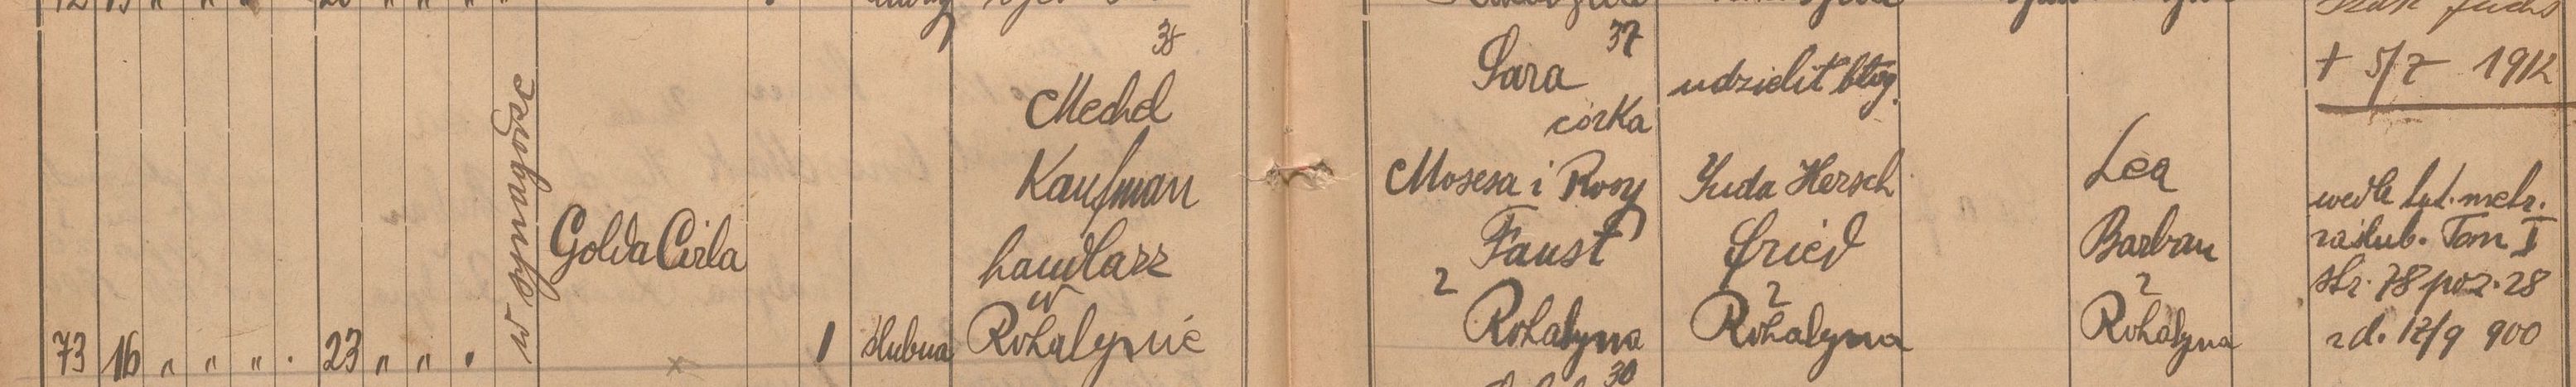 35
37
Mechel
Sara
udzielił błog.
+ 5/7 1912
córka
Kaufman
Mosesa i Rozy
Juda Hersch
Lea
w synagodse
Golda Cirla
handlarz
Faust
Fried
Barban
wedle tut. metr.
zaślub. Tom I
str. 78 poz. 28
w
z
z
z
73 16 " " " . 23 " " "
1
ślubna
Rohatynie
Rohatyna
Rohatyna
Rohatyna
z d. 12/9 900
x
30